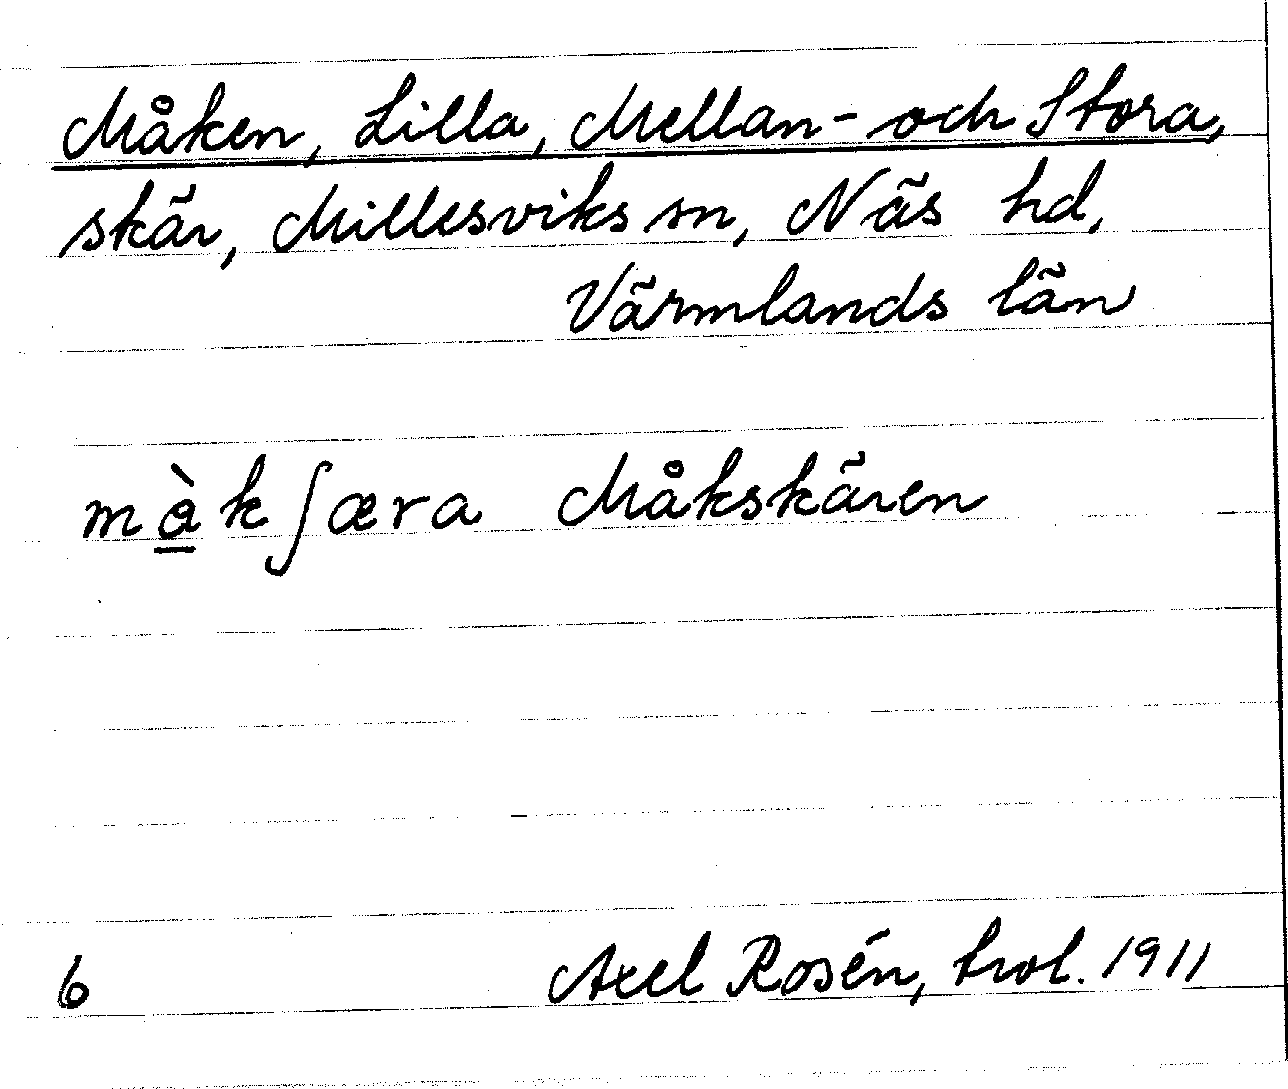 Måken, Lilla, Mellan- och Stora,
skär, Millesviks sn, Näs hd,
Värmlands län
mà̱kʃæra Måkskären
6 Axel Rosén, trol. 1911